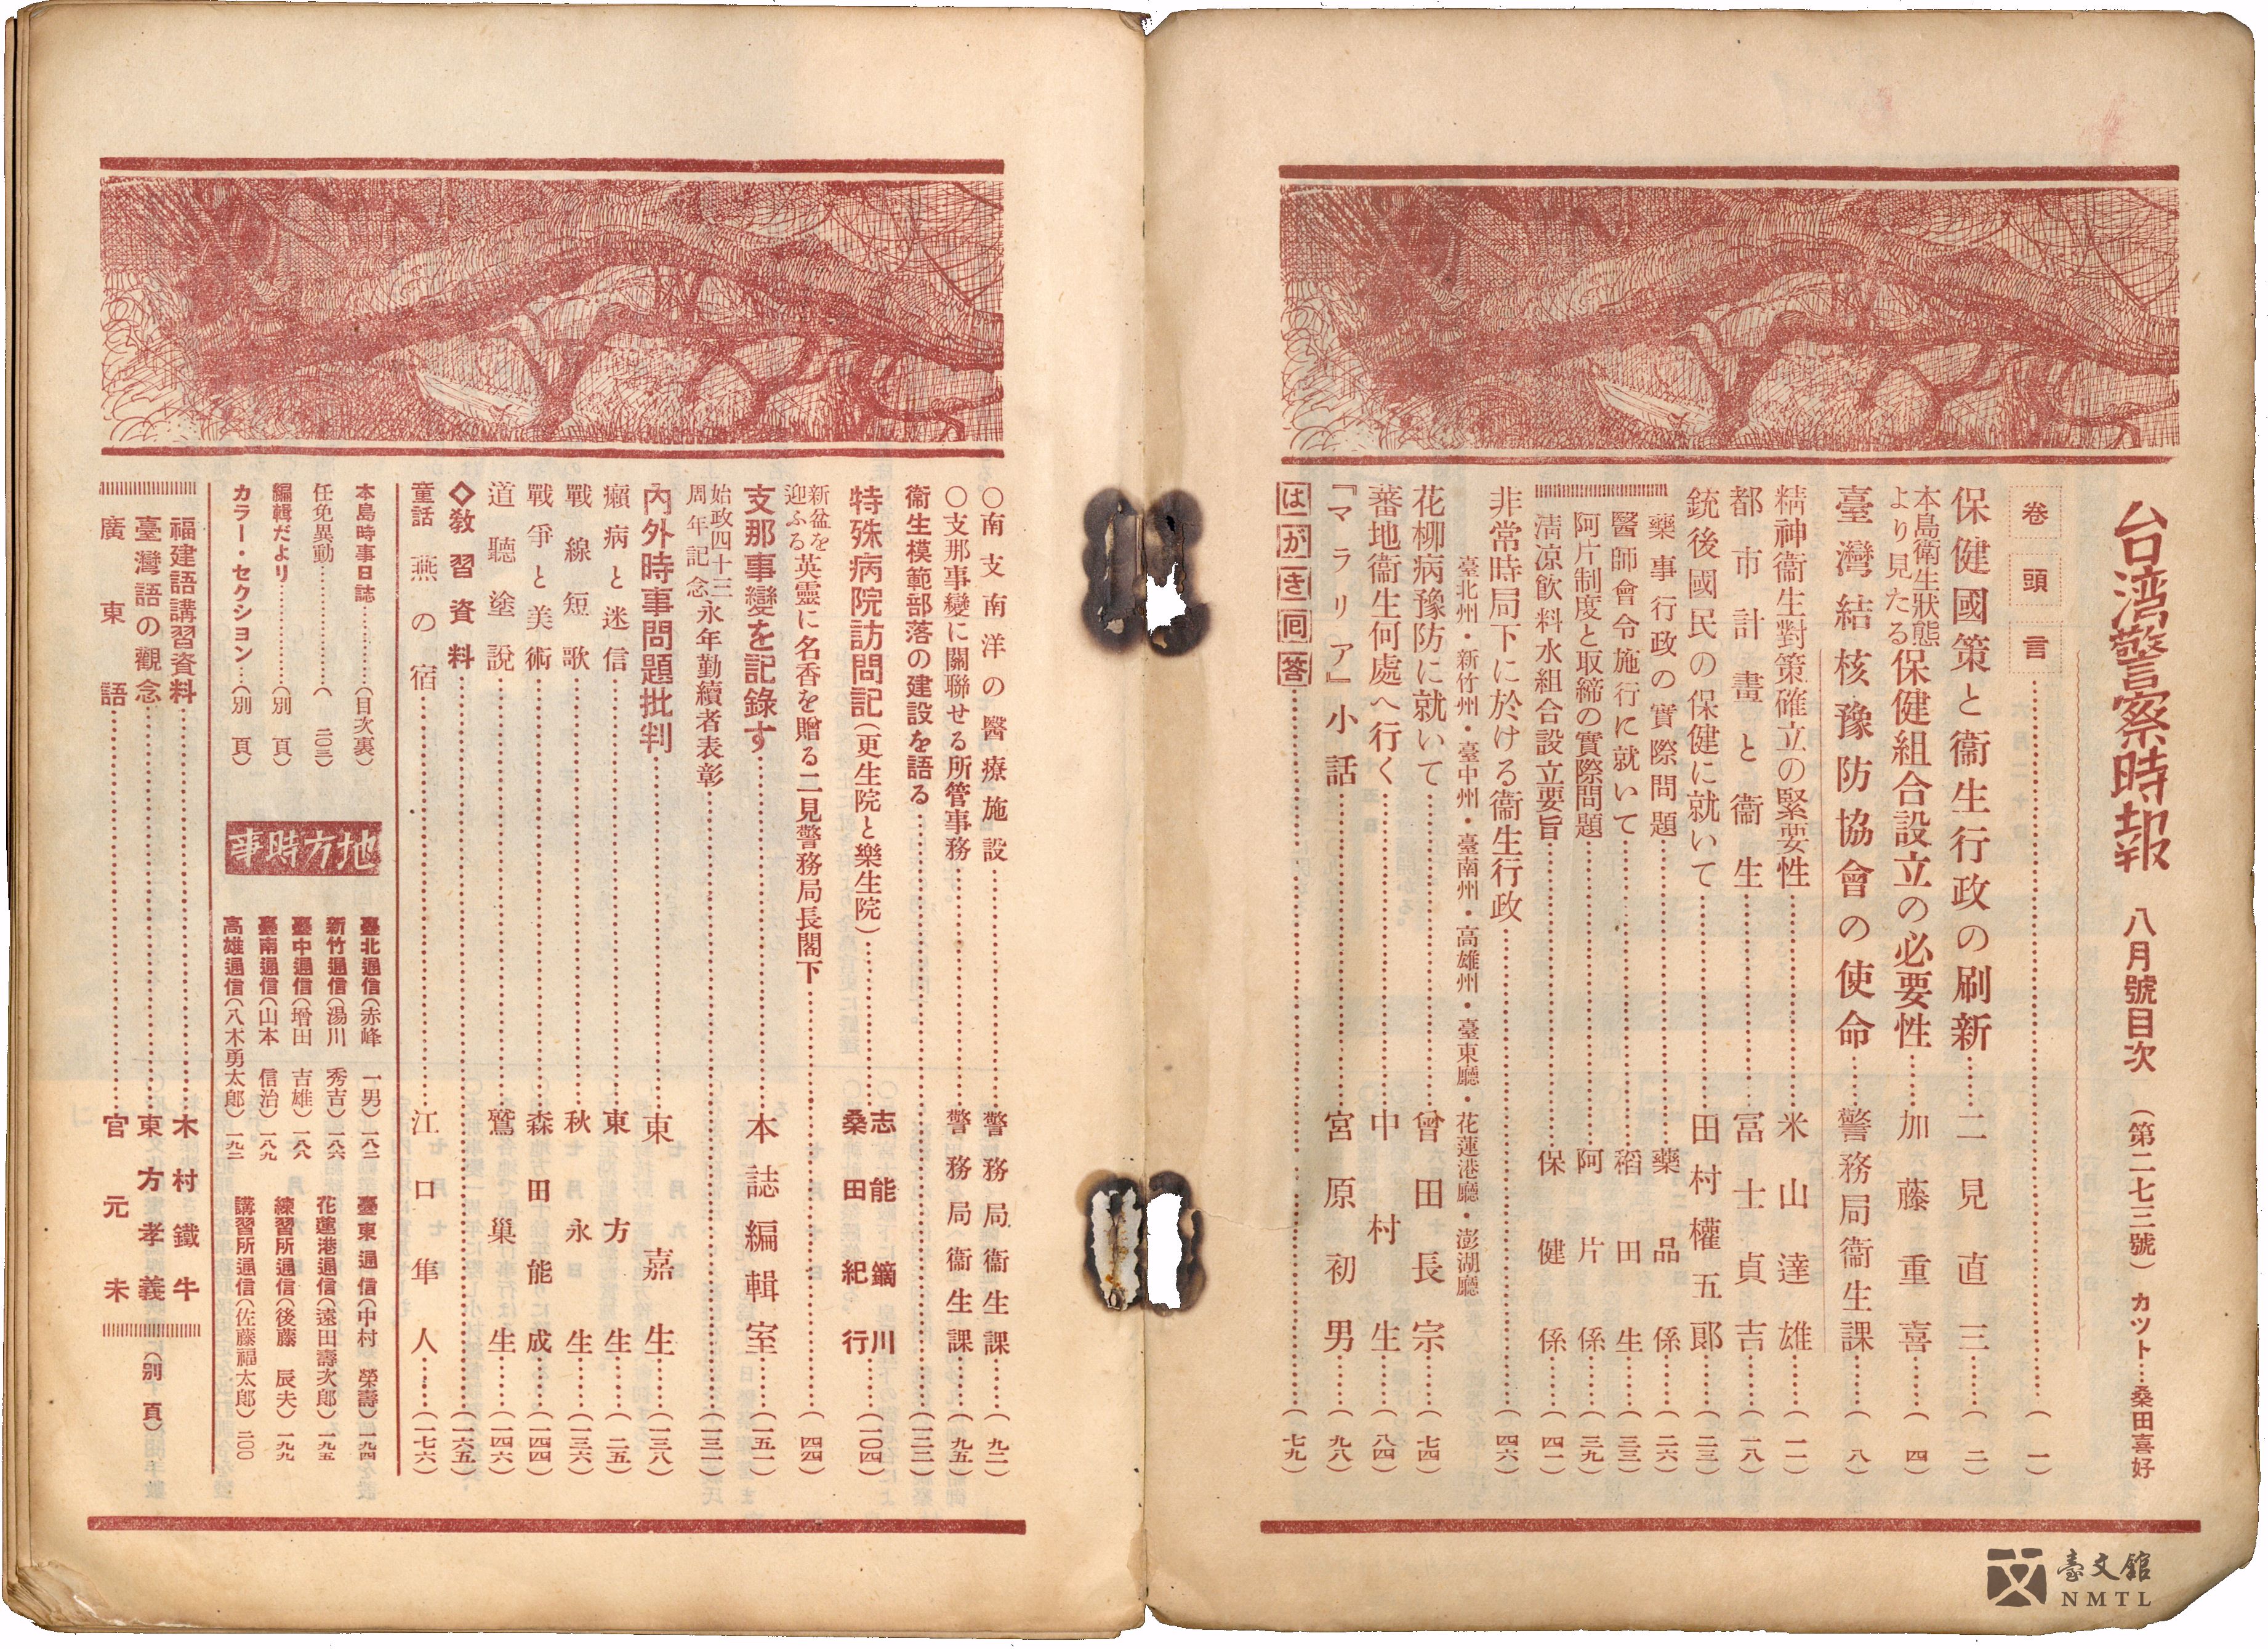 台湾警察時報 八月號目次 (第二七三號) カット…桑田喜好
卷頭言……(一)
保健國策と衞生行政の刷新……二見直三……(二)
本島衞生狀態より見たる保健組合設立の必要性……加藤重喜……(四)
臺灣結核豫防協會の使命……警務局衞生課……(八)
精神衞生對策確立の緊要性……米山達雄……(一一)
都市計畫と衞生……冨士貞吉……(一八)
銃後國民の保健に就いて……田村權五郞……(二三)
藥事行政の實際問題……藥品係……(二六)
醫師會令施行に就いて……稻田生……(三三)
阿片制度と取締の實際問題……阿片係……(三九)
淸凉飮料水組合設立要旨……保健係……(四一)
非常時局下に於ける衞生行政……(四六)
臺北州・新竹州・臺中州・臺南州・高雄州・臺東廳・花蓮港廳・澎湖廳
花柳病豫防に就いて……曾田長宗……(七四)
蕃地衞生何處へ行く……中村生……(八四)
『マラリア』小話……宮原初男……(九八)
はがき囘答……(七九)
○南支南洋の醫療施設……警務局衞生課……(九二)
○支那事變に關聯せる所管事務……警務局衞生課……(九五)
衞生模範部落の建設を語る……(一二二)
特殊病院訪問記(更生院と樂生院)……志能鏑川 桑田紀行……(一〇四)
新盆を迎ふる英靈に名香を贈る二見警務局長閣下……(四四)
支那事變を記錄す……本誌編輯室……(一五一)
始政四十三周年記念永年勤續者表彰……(一三一)
內外時事問題批判……東嘉生……(一三八)
癩病と迷信……東方生……(二五)
戰線短歌……秋永生……(一三六)
戰爭と美術……森田能成……(一四四)
道聽塗說……鷲巢生……(一四六)
◇敎習資料……(一六五)
童話 燕の宿……江口隼人……(一七六)
本島時事日誌……(目次裏)
任免異動……(二〇三)
編輯だより……(別頁)
カラー・セクション…(別頁)
地方時事
臺北通信(赤峰一男)一八二
新竹通信(湯川秀吉)一八六
臺中通信(增田吉雄)一八八
臺南通信(山本信治)一八九
高雄通信(八木勇太郞)一九二
臺東通信(中村榮壽)一九四
花蓮港通信(遠田壽次郞)一九五
練習所通信(後藤辰夫)一九九
講習所通信(佐藤福太郞)二〇〇
福建語講習資料……木村鐵牛
臺灣語の觀念……東方孝義
廣東語……官元未
(別頁)
臺文館
NMTL